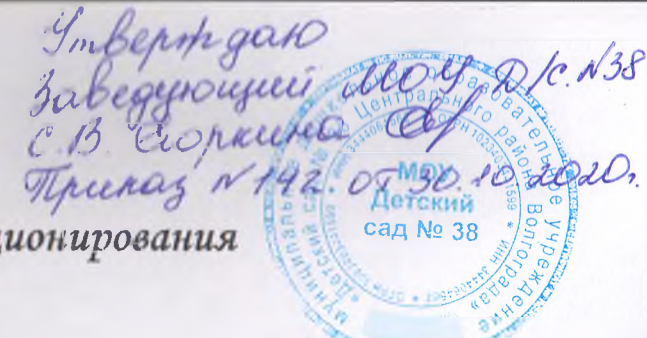 Утверждаю
Заведующий МОУ Д/с. №38
С.В.
Приказ №142. от 30.10.2020г.
ционирования
МОУ
Детский
сад № 38
муниципальное образовательное учреждение
«Детский сад № Центрального района Волгограда»